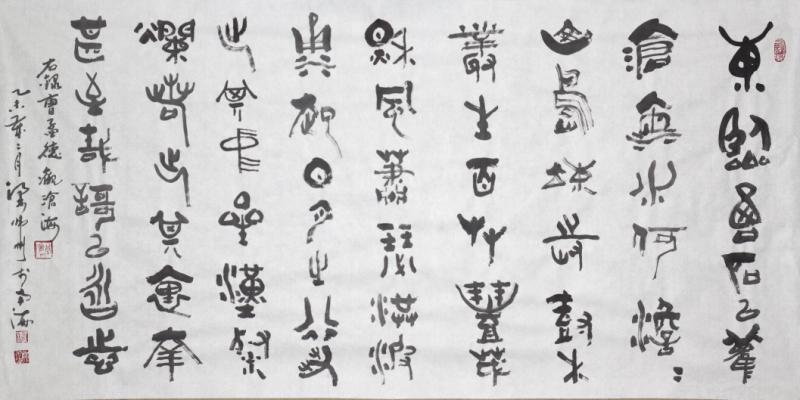 東臨碣石以觀
滄海水何澹〻
山島竦峙樹木
叢生百草豐茂
秋風蕭瑟洪波
涌起日月之行若
出其中星漢燦
爛若出其裏幸
甚至哉歌以詠志
右錄曹孟德觀滄海
乙未年二月梁州於南海